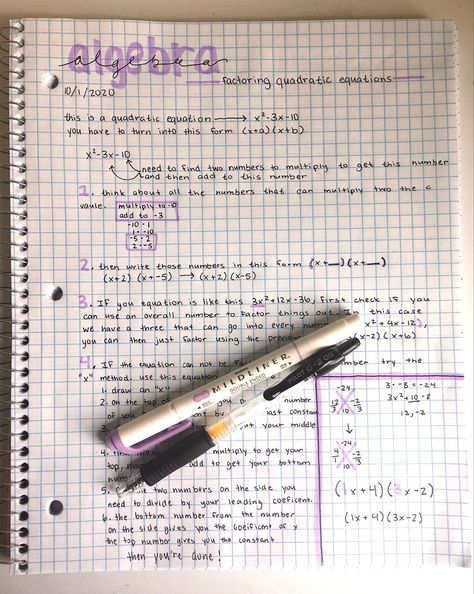 algebra
algebra
factoring quadratic equations
10/1/2020
this is a quadratic equation → x²-3x-10
you have to turn into this form (x+a)(x+b)
x²-3x-10
need to find two numbers to multiply to get this number
and then add to this number
1. think about all the numbers that can multiply two the c
vaule. multiply to -10
add to -3
-10 · 1
1 · -10
-5 · 2
2 · -5
2. then write those numbers in this form (x+__)(x+__)
(x+2) (x+-5) → (x+2)(x-5)
3. If you equation is like this 3x²+12x-36, first check if you
can use an overall number to factor things out. In this case
we have a three that can go into every x²+4x-12
you can then just factor using the (x-2)(x+6)
4. If the equation can not be number try the
"x" method. use this
1. draw an "x"
2. on the top of number
of you last constant
3. your middle
4. multiply to get your
top, add to get your bottom
5. two numbers on the side you
need to divide by your leading coeficent.
6. the bottom number from the number
on the side gives you the coeificent of x
the top number gives you the constant
then you're done!
MILDLINER
DOUBLE ENDED
PILOT G-2 08
-24
12/3 -2/3
10
-24
4/1 -2/3
10
3 · -8 = -24
3x²+10-8
12, -2
(1x+4)(3x-2)
(1x+4)(3x-2)